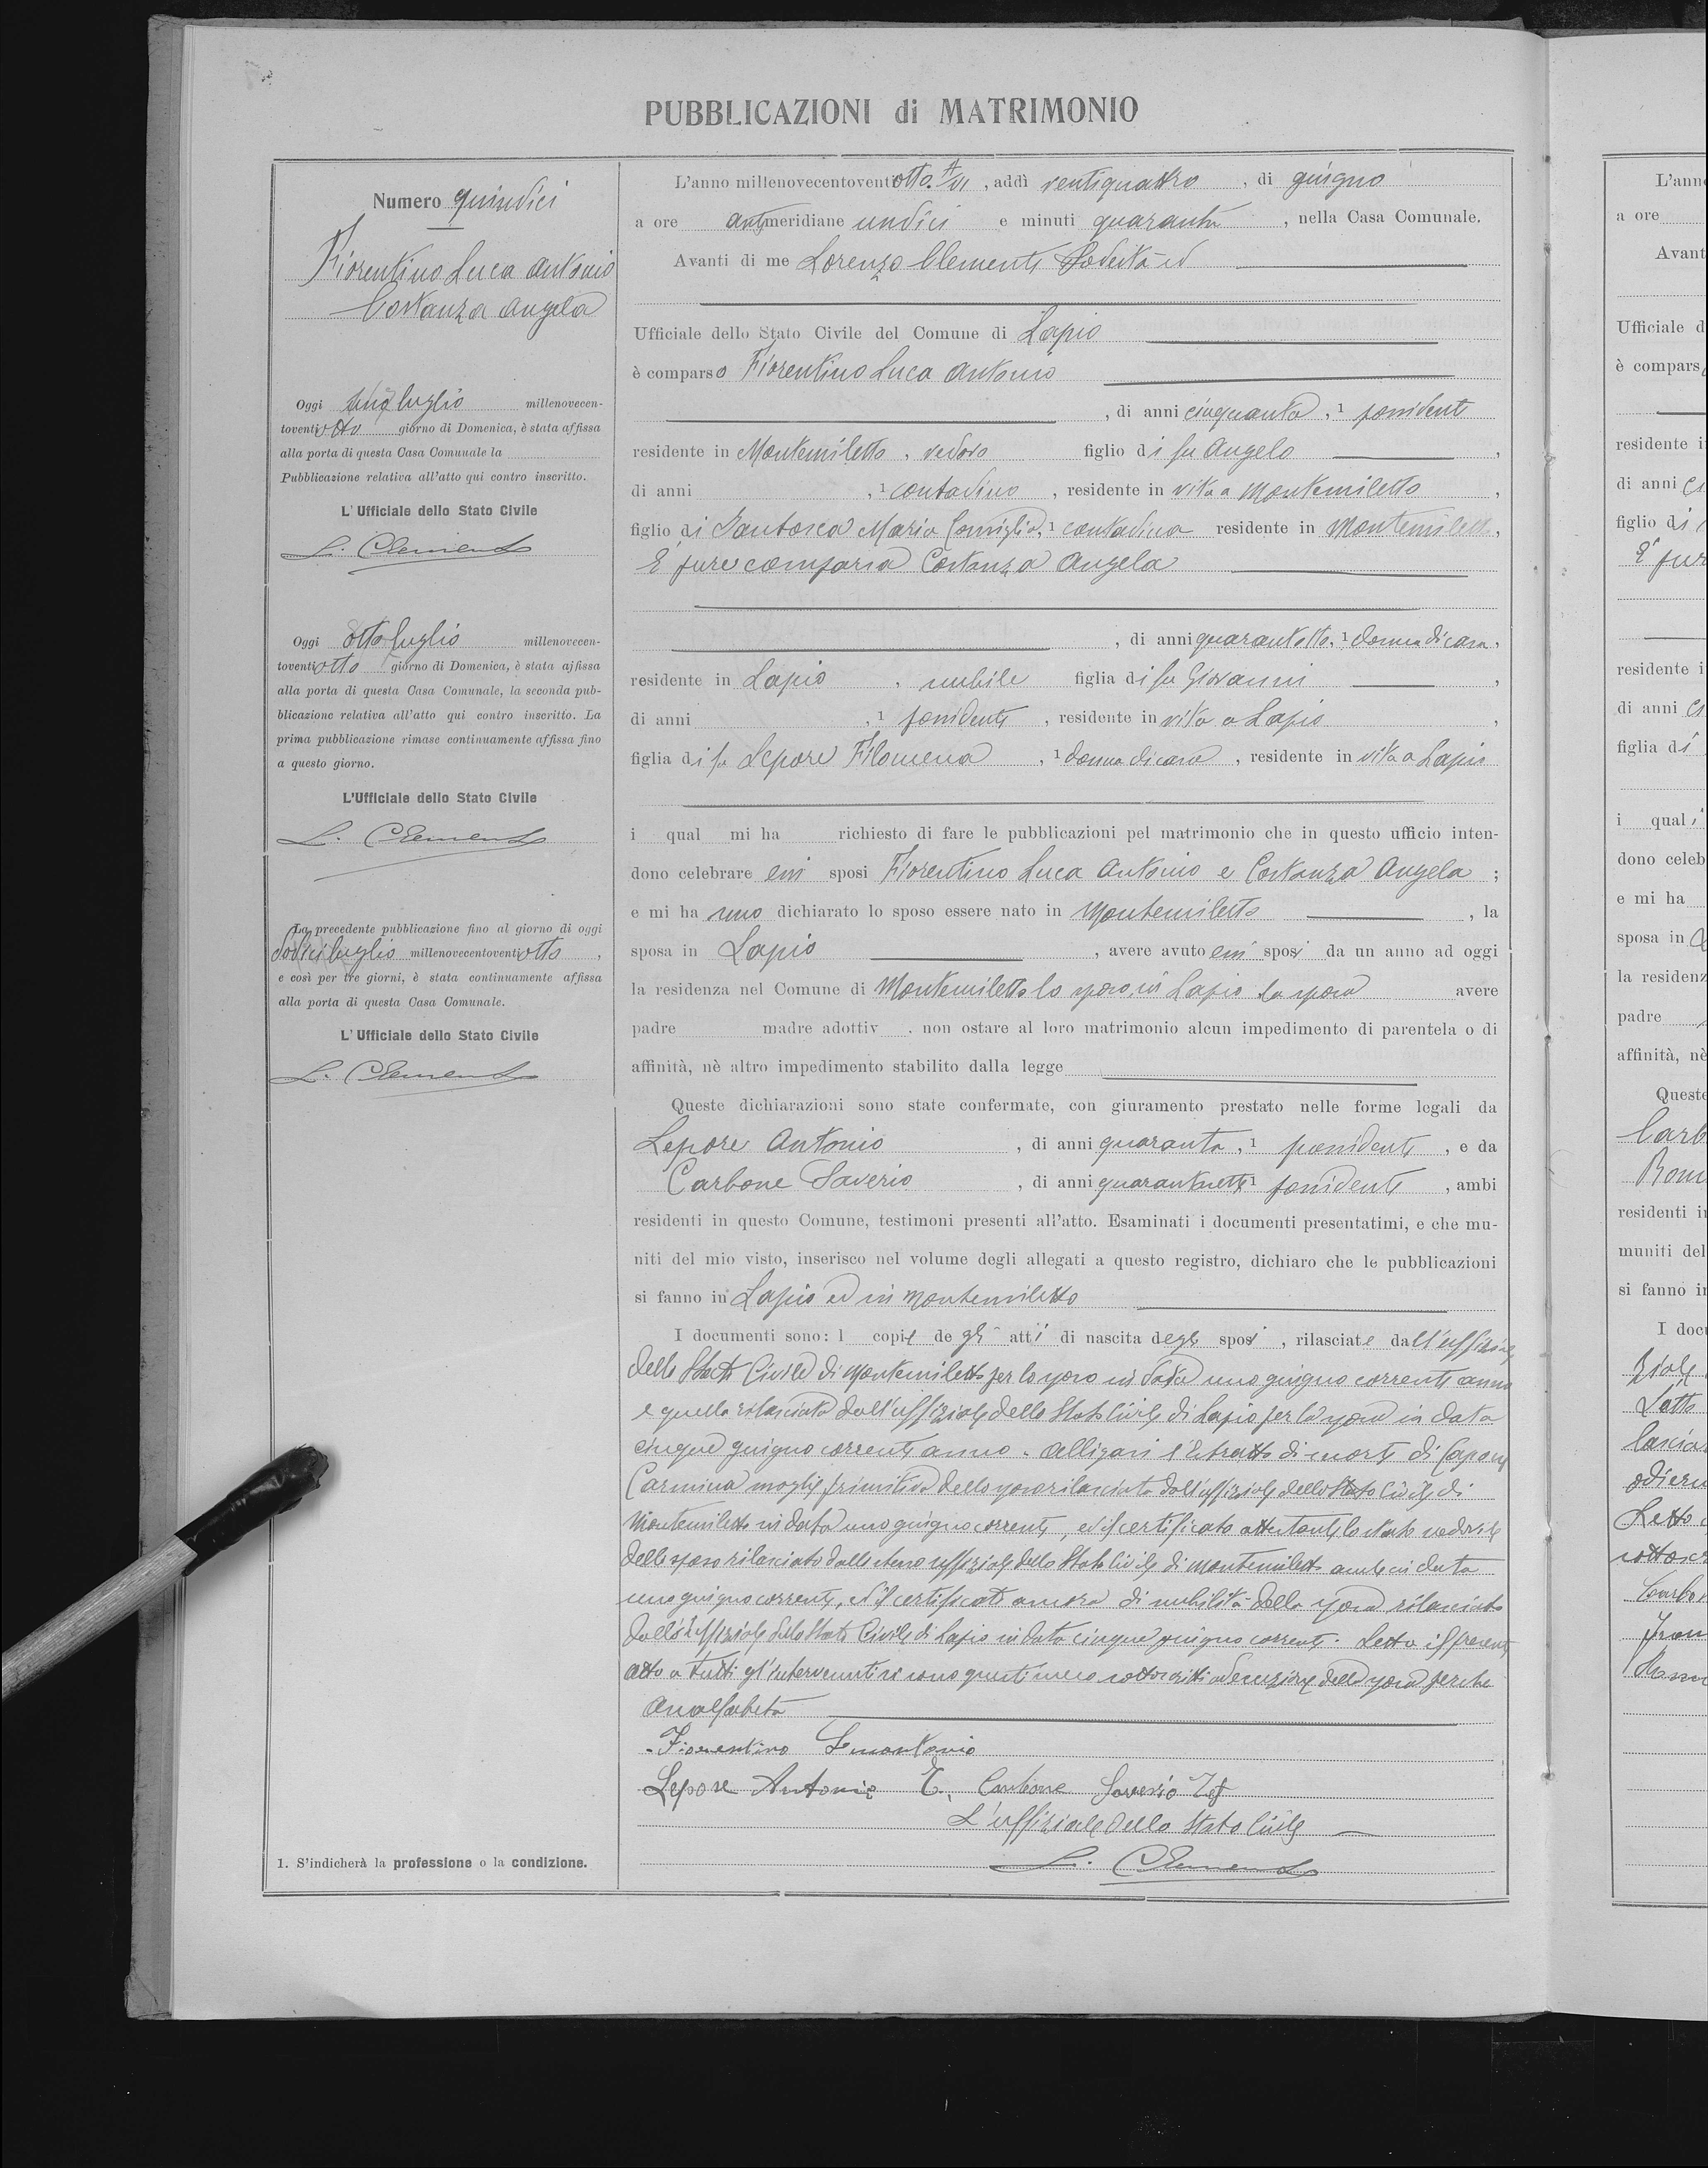 PUBBLICAZIONI di MATRIMONIO
Numero quindici
Fiorentino Luca Antonio
Costanza Angela
Oggi uno luglio millenovecen-
toventiotto giorno di Domenica, è stata affissa
alla porta di questa Casa Comunale la
Pubblicazione relativa all'atto qui contro inscritto.
L'Ufficiale dello Stato Civile
L. Clemente
Oggi otto luglio millenovecen-
toventiotto giorno di Domenica, è stata affissa
alla porta di questa Casa Comunale, la seconda pub-
blicazione relativa all'atto qui contro inscritto. La
prima pubblicazione rimase continuamente affissa fino
a questo giorno.
L'Ufficiale dello Stato Civile
L. Clemente
La precedente pubblicazione fino al giorno di oggi
dodici luglio millenovecentoventiotto,
e così per tre giorni, è stata continuamente affissa
alla porta di questa Casa Comunale.
L'Ufficiale dello Stato Civile
L. Clemente
1. S'indicherà la professione o la condizione.
L'anno millenovecentoventiotto. A VI, addì ventiquattro, di giugno
a ore antimeridiane undici e minuti quaranta, nella Casa Comunale.
Avanti di me Lorenzo Clemente Podestà ed
Ufficiale dello Stato Civile del Comune di Lapio
è comparso Fiorentino Luca Antonio
, di anni cinquanta, 1 possidente
residente in Montemiletto, vedovo figlio di fu Angelo,
di anni , 1 contadino, residente in vita a Montemiletto,
figlio di Santosca Maria , 1 contadina residente in Montemiletto,
È pure comparsa Costanza Angela
, di anni quarantotto, 1 donna di casa,
residente in Lapio, nubile figlia di fu Giovanni,
di anni , 1 possidente, residente in vita a Lapio,
figlia di fu Lepore Filomena, 1 donna di casa, residente in vita a Lapio
i qual mi ha richiesto di fare le pubblicazioni pel matrimonio che in questo ufficio inten-
dono celebrare essi sposi Fiorentino Luca Antonio e Costanza Angela;
e mi ha nno dichiarato lo sposo essere nato in Montemiletto, la
sposa in Lapio, avere avuto essi sposi da un anno ad oggi
la residenza nel Comune di Montemiletto lo sposo, in Lapio la sposa avere
padre madre adottiv . non ostare al loro matrimonio alcun impedimento di parentela o di
affinità, nè altro impedimento stabilito dalla legge
Queste dichiarazioni sono state confermate, con giuramento prestato nelle forme legali da
Lepore Antonio, di anni quaranta, 1 possidente, e da
Carbone Saverio, di anni 1 possidente, ambi
residenti in questo Comune, testimoni presenti all'atto. Esaminati i documenti presentatimi, e che mu-
niti del mio visto, inserisco nel volume degli allegati a questo registro, dichiaro che le pubblicazioni
si fanno in Lapio ed in Montemiletto
I documenti sono: l copie de gli atti di nascita degli sposi, rilasciate dall'uffiziale
dello Stato Civile di Montemiletto per lo sposo in data uno giugno corrente anno
e quella rilasciata dall'uffiziale dello Stato Civile di Lapio per la sposa in data
cinque giugno corrente anno. Alligasi l'estratto di morte di Capone
Carmina moglie primitiva dello sposo rilasciato dall'uffiziale dello Stato Civile di
Montemiletto in data uno giugno corrente, ed il certificato attestante lo stato vedovile
dello sposo rilasciato dallo stesso uffiziale dello Stato Civile di Montemiletto anche in data
uno giugno corrente, ed il certificato ancora di nubilità della sposa rilasciato
dall'uffiziale dello Stato Civile di Lapio in data cinque giugno corrente. Letto il presente
atto a tutti gl'intervenuti si sono questi meco sottoscritti ad eccezione della sposa perché
analfabeta
Fiorentino Lucantonio
Lepore Antonio T. Carbone Saverio Tes
L'uffiziale dello Stato Civile
L. Clemente
L'anno
a ore
Avant
Ufficiale d
è compars
residente i
di anni
figlio di
È pur
residente i
di anni
figlia di
i quali
dono celeb
e mi ha
sposa in
la residenz
padre
affinità, nè
Queste
Carb
residenti i
muniti del
si fanno in
I doc
Letto